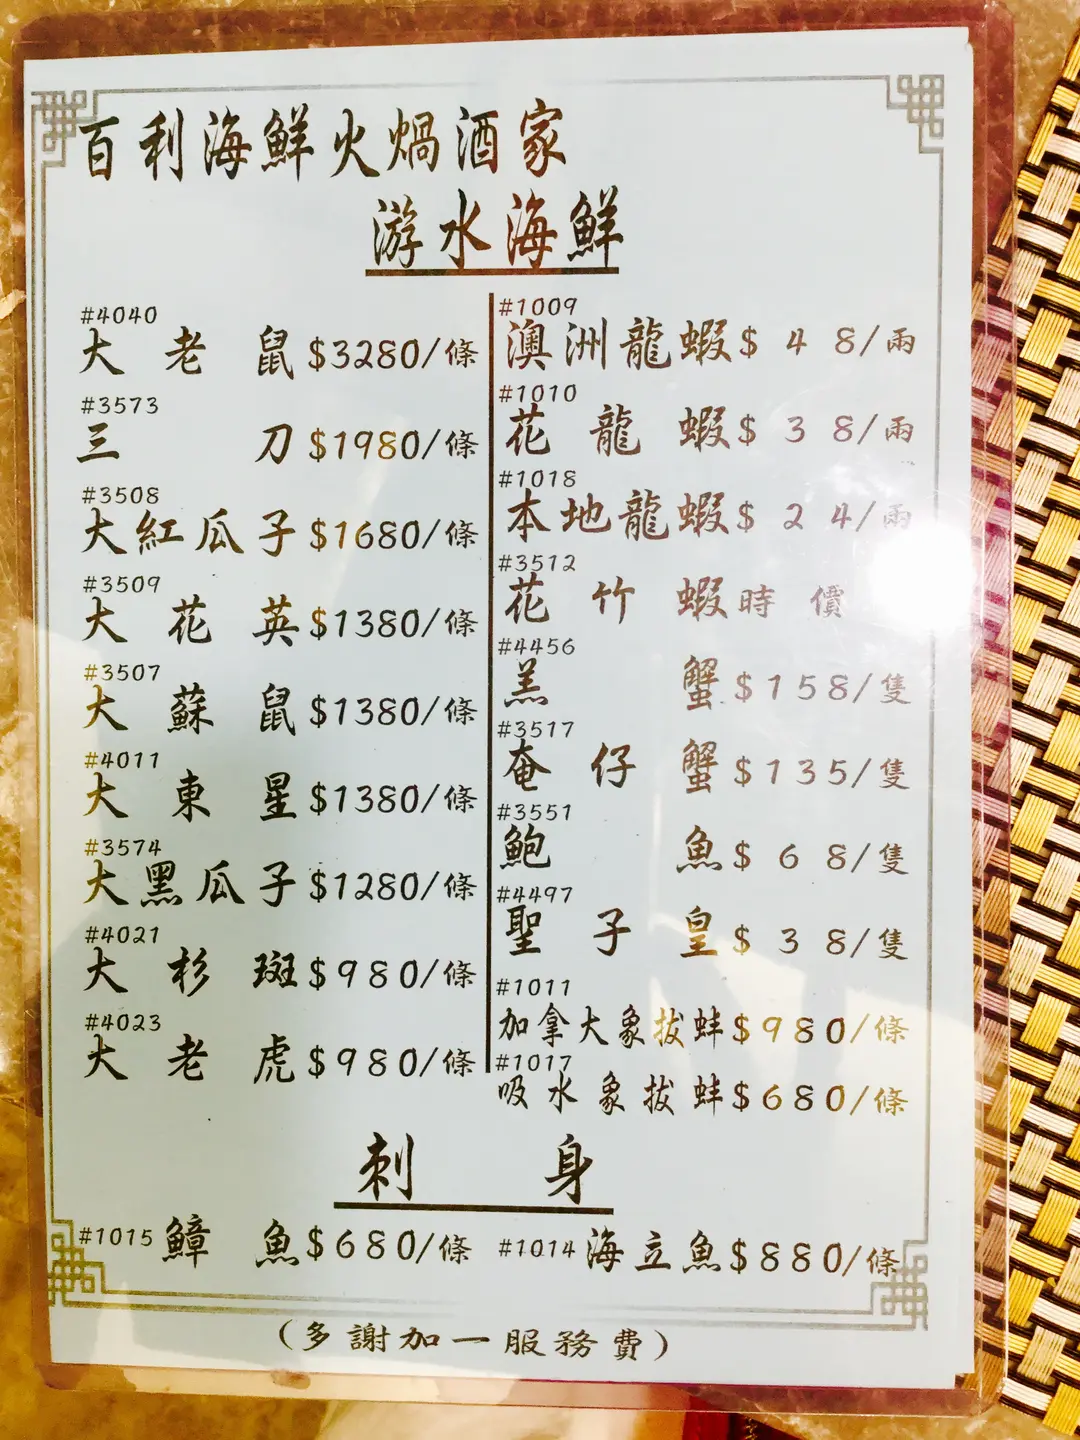 百利海鮮火煱酒家
游水海鮮
#4040
大老鼠$3280/條
#3573
三刀$1980/條
#3508
大紅瓜子$1680/條
#3509
大花英$1380/條
#3507
大蘇鼠$1380/條
#4011
大東星$1380/條
#3574
大黑瓜子$1280/條
#4021
大杉斑$980/條
#4023
大老虎$980/條
#1009
澳洲龍蝦$48/兩
#1010
花龍蝦$38/兩
#1018
本地龍蝦$24/兩
#3512
花竹蝦時價
#4456
羔蟹$158/隻
#3517
奄仔蟹$135/隻
#3551
鮑魚$68/隻
#4497
聖子皇$38/隻
#1011
加拿大象拔蚌$980/條
#1017
吸水象拔蚌$680/條
刺身
#1015 鱆魚$680/條
#1014 海立魚$880/條
(多謝加一服務費)